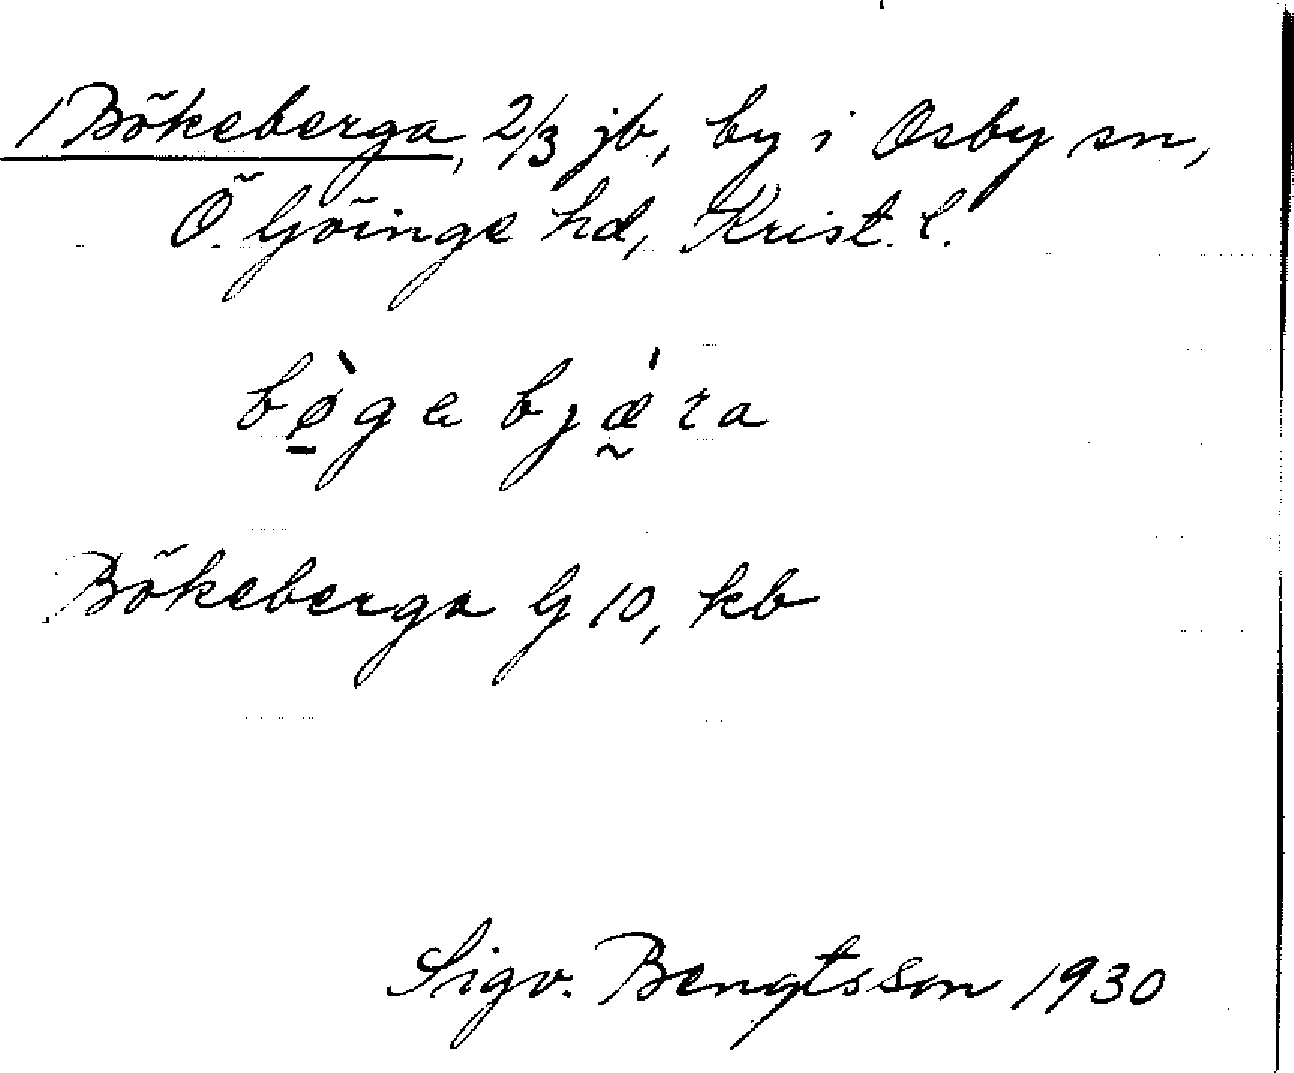 Bökeberga, 2/3 jb, by i Osby sn,
Ö. Göinge hd, Krist. l.
bø̱̀ge bjǽ̰ra
Bökeberga G 10, kb
Sigv. Bengtsson 1930